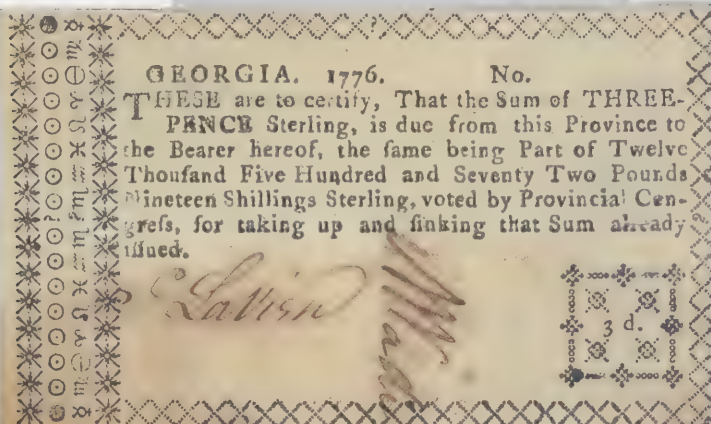 GEORGIA. 1776. No.
THESE are to certify, That the Sum of THREE-
PENCE Sterling, is due from this Province to
the Bearer hereof, the ſame being Part of Twelve
Thouſand Five Hundred and Seventy Two Pounds
Nineteen Shillings Sterling, voted by Provincial Con-
greſs, for taking up and ſinking that Sum already
iſſued.
3 d.